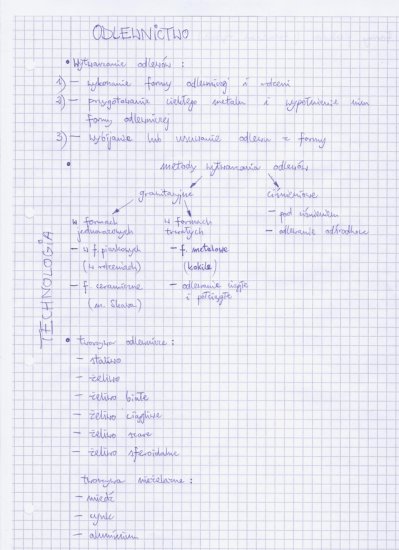 ODLEWNICTWO
• Wytwarzanie odlewów:
1) – wykonanie formy odlewniczej i rdzeni
2) – przygotowanie ciekłego metalu i wypełnienie nim
formy odlewniczej
3) – wybijanie lub usuwanie odlewu z formy
• metody wytwarzania odlewów
grawitacyjne
ciśnieniowe
– pod ciśnieniem
– odlewanie odśrodkowe
w formach
jednorazowych
– w f. piaskowych
(w rdzeniach)
– f. ceramiczne
(m. Shawa)
w formach
trwałych
– f. metalowe
(kokile)
– odlewanie ciągłe
i półciągłe
TECHNOLOGIA
• tworzywa odlewnicze:
– staliwo
– żeliwo
– żeliwo białe
– żeliwo ciągliwe
– żeliwo szare
– żeliwo sferoidalne
tworzywa nieżelazne:
– miedź
– cynk
– aluminium